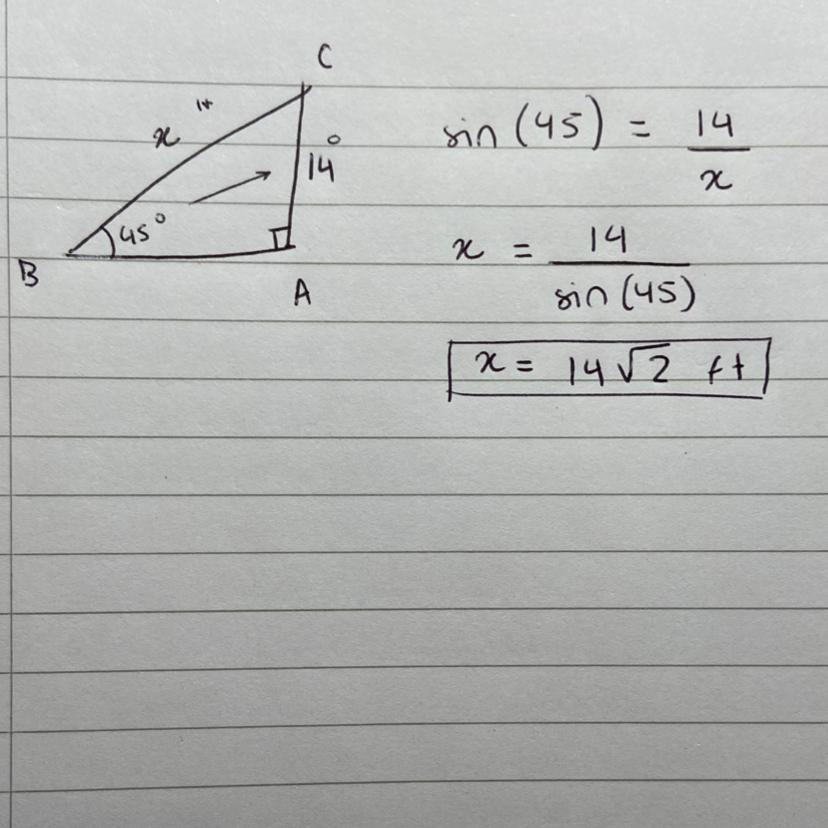 C
x
14°
45°
B
A
sin (45) = 14/x
x = 14/sin (45)
x = 14√2 ft